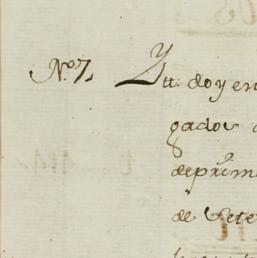 Nº 7.
Ytt. doy en
gados
de prim
de Sete